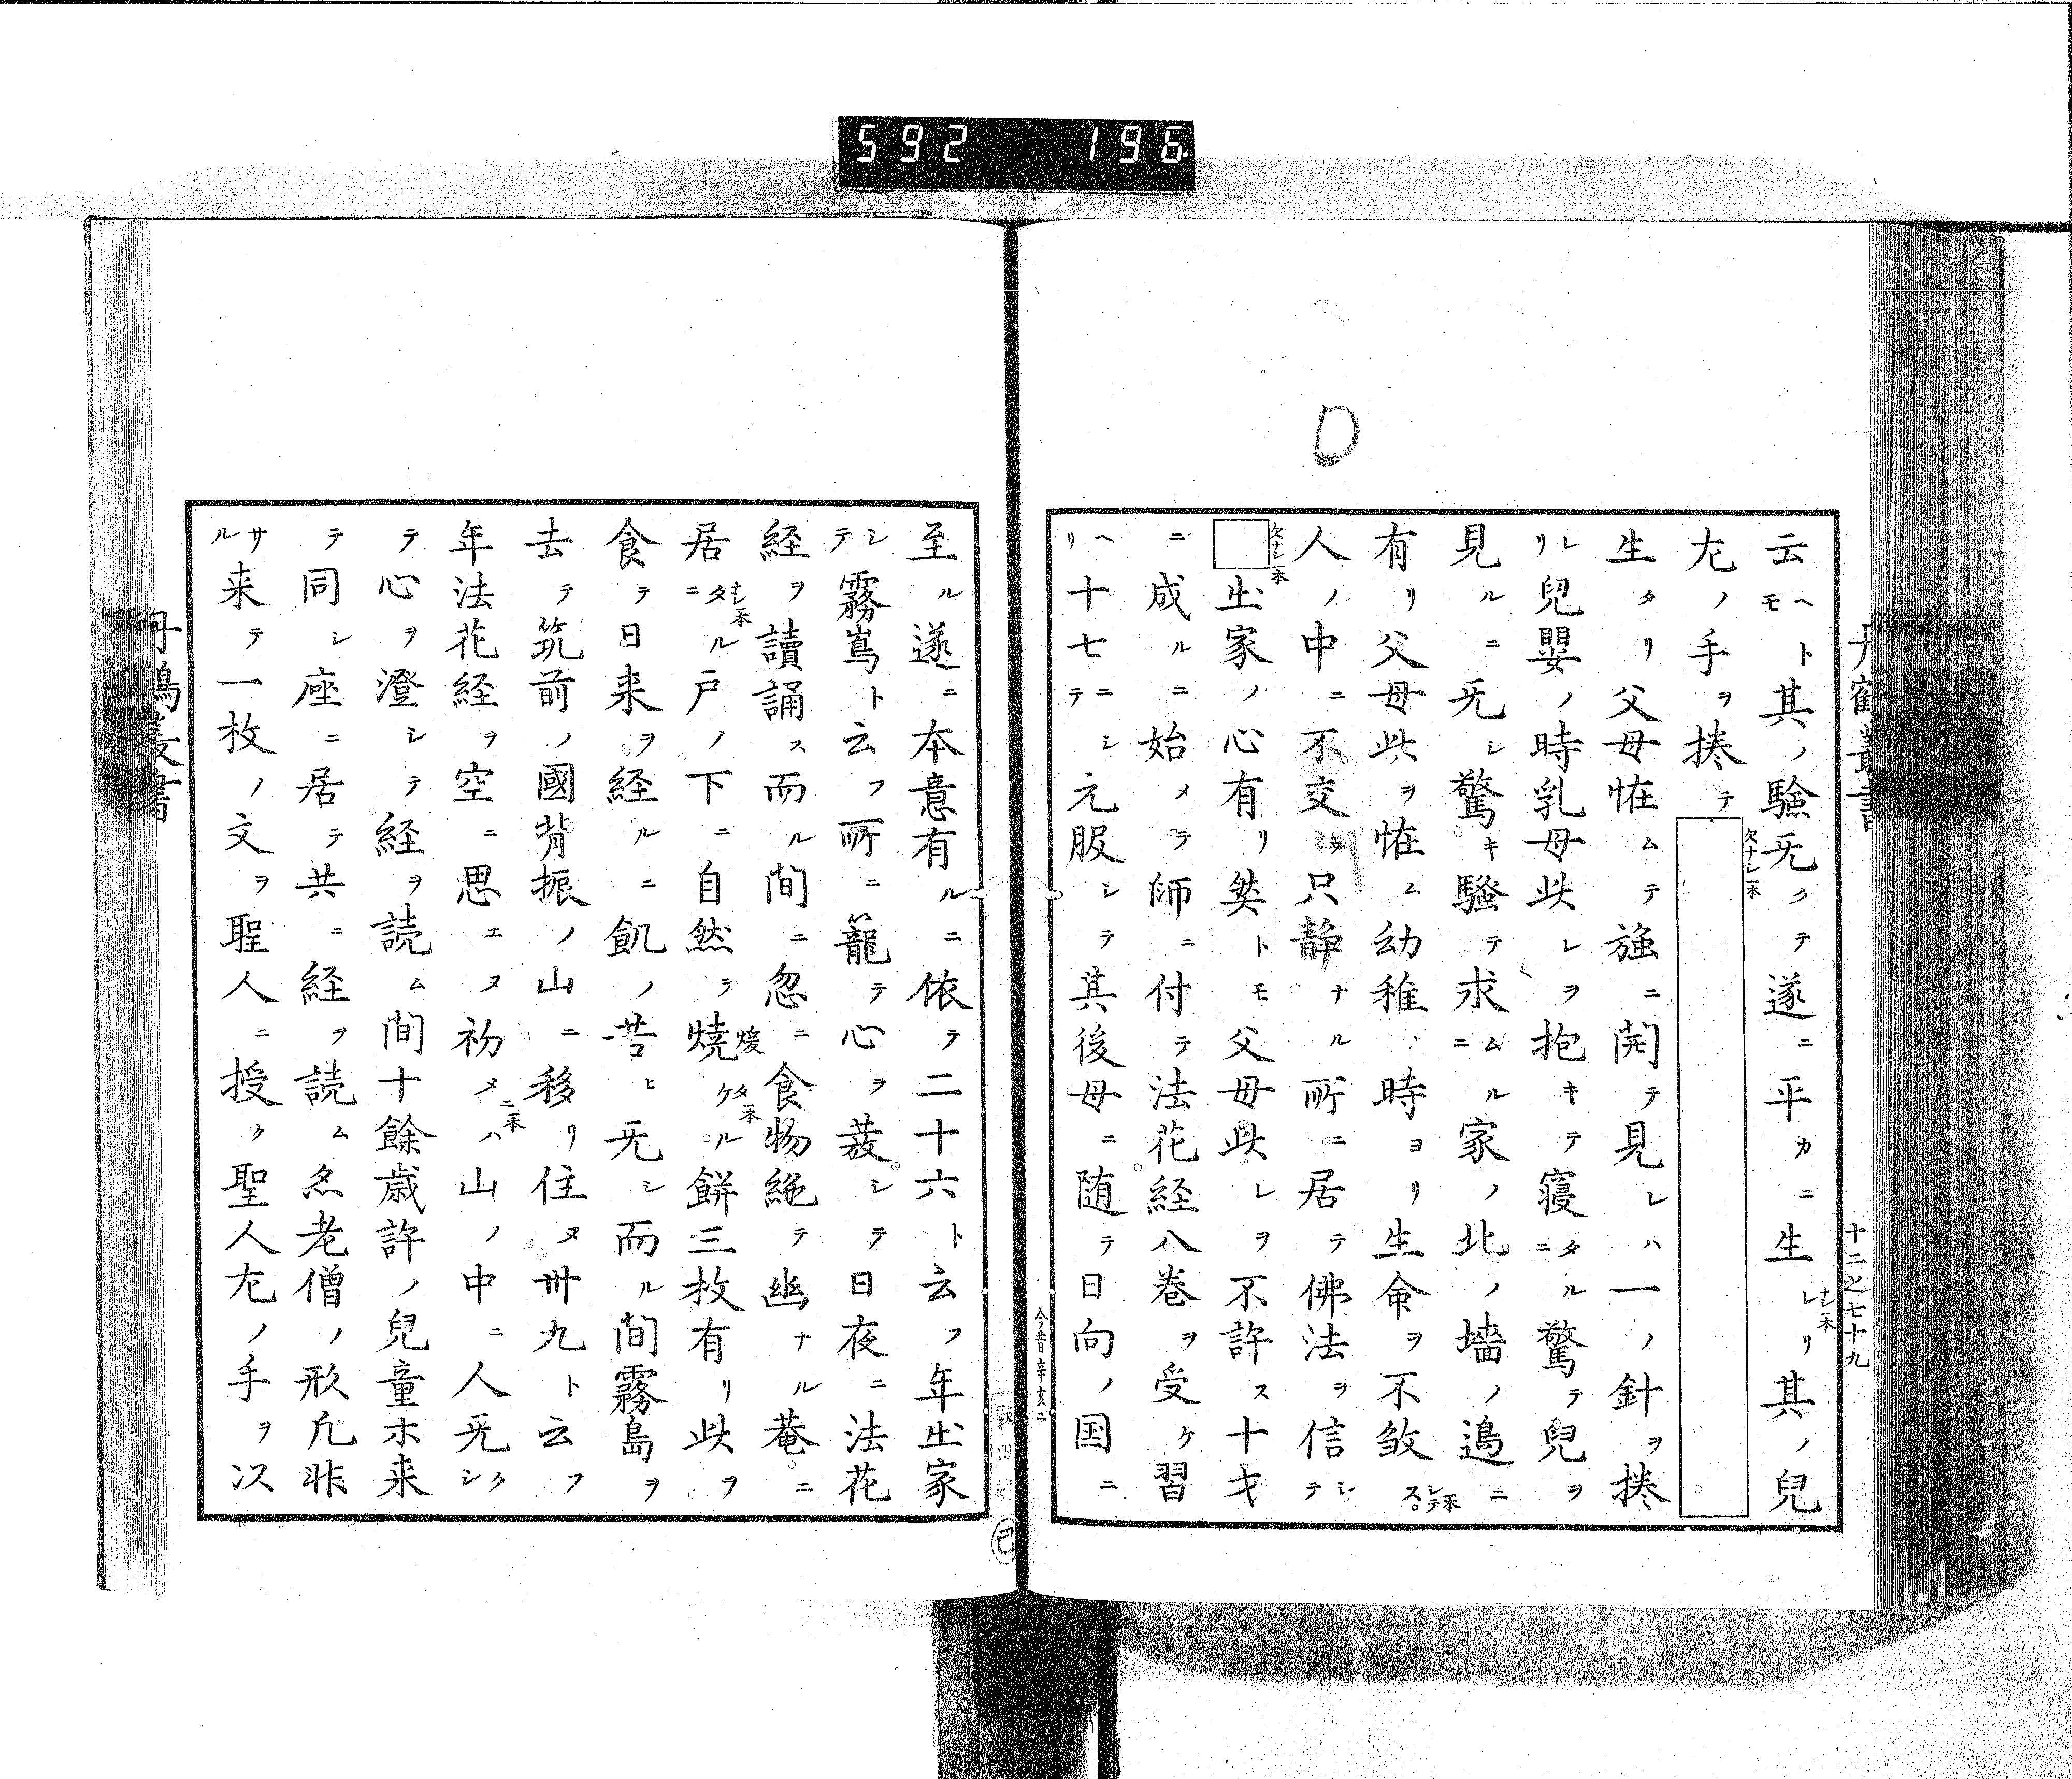 592 196
丹鶴叢書
十二之七十九
云ヘトモ其ノ驗旡クテ遂ニ平カニ生レナシ一本リ其ノ兒
左ノ手ヲ捲テ欠ナシ一本
生タリ父母恠ムテ強ニ開テ見レハ一ノ針ヲ捲
レリ兒嬰ノ時乳母此レヲ抱キテ寢タルニ驚テ兒ヲ
見ルニ旡シ驚キ騒テ求ムルニ家ノ北ノ墻ノ邊ニ
有リ父母此ヲ恠ム幼稚ノ時ヨリ生命ヲ不敓シテ一本ス
人ノ中ニ不交ヲ只静ナル所ニ居テ佛法ヲ信シテ
欠ナシ一本出家ノ心有リ然トモ父母此レヲ不許ス十才
ニ成ルニ始メテ師ニ付テ法花経八巻ヲ受ケ習
ヘリ十七ニシテ元服シテ其後母ニ随テ日向ノ国ニ
今昔 辛亥ニ
至ル遂ニ本意有ルニ依テ二十六ト云フ年出家
シテ霧嶌ト云フ所ニ籠テ心ヲ發シテ日夜ニ法花
経ヲ讀誦ス而ル間ニ忽ニ食物絶テ幽ナル菴ニ
居タルニナシ一本戸ノ下ニ自然ラ燒煖ケタ一本ル餅三枚有リ此ヲ
食テ日来ヲ経ルニ飢ノ苦ヒ旡シ而ル間霧島ヲ
去テ筑前ノ國背振ノ山ニ移リ住ヌ卅九ト云フ
年法花経ヲ空ニ思エヌ初メニ一本ハ山ノ中ニ人旡クシ
テ心ヲ澄シテ経ヲ読ム間十餘歳許ノ兒童木来
テ同シ座ニ居テ共ニ経ヲ読ム亦老僧ノ形凡非
サル来テ一枚ノ文ヲ聖人ニ授ク聖人左ノ手ヲ以
丹鶴叢書